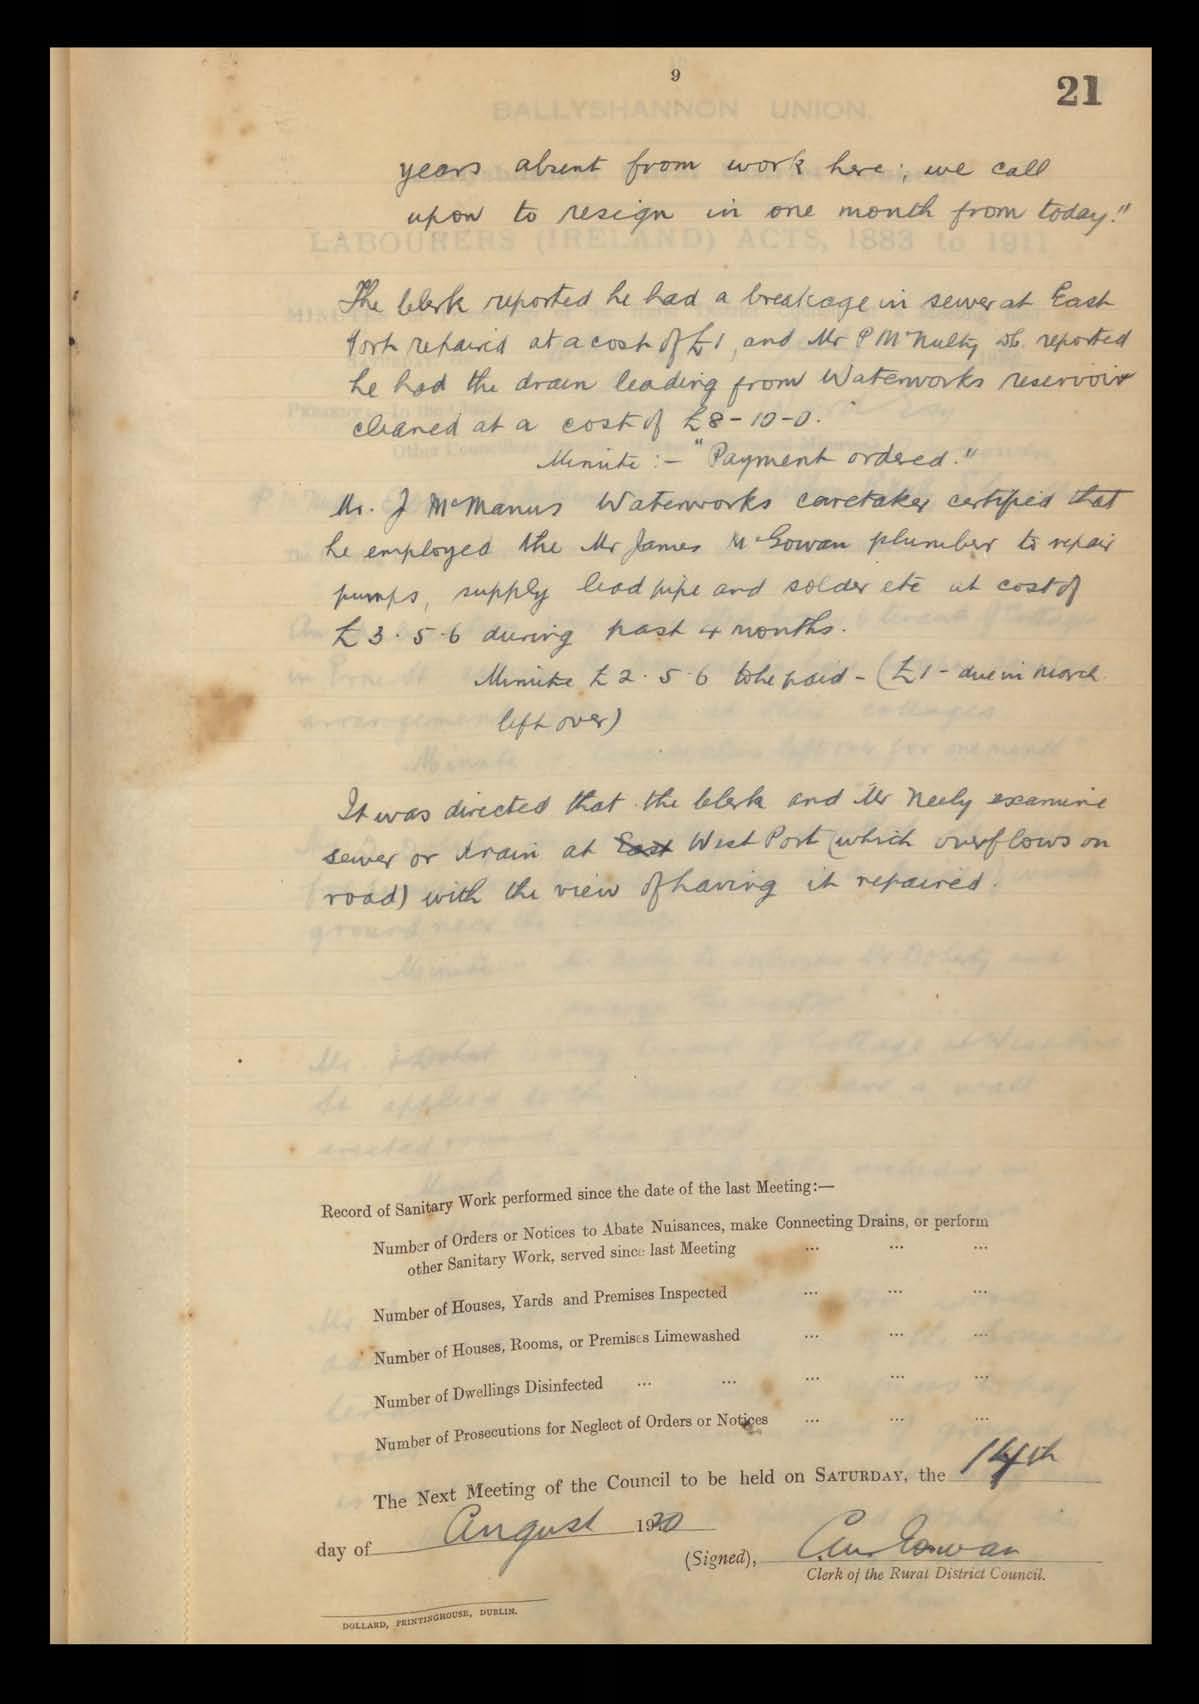 9
21
years absent from work here; we call
upon to resign in one month from today."
The Clerk reported he had a breakage in sewer at East
Port repaired at a cost of £1, and Mr P McNulty reported
he had the drain leading from Waterworks reservoir
cleaned at a cost of £8-10-0.
Minute :- "Payment ordered."
Mr. J McManus Waterworks caretaker certified that
he employed the Mr James McGowan plumber to repair
pumps, supply lead pipe and solder etc at cost of
£3.5.6 during past 4 months.
Minute £2.5.6 to be paid - (£1 - due in March
left over)
It was directed that the Clerk and Mr Neely examine
sewer or drain at East West Port (which overflows on
road) with the view of having it repaired.
Record of Sanitary Work performed since the date of the last Meeting:—
Number of Orders or Notices to Abate Nuisances, make Connecting Drains, or perform
other Sanitary Work, served since last Meeting ... ... ...
Number of Houses, Yards and Premises Inspected ... ... ...
Number of Houses, Rooms, or Premises Limewashed ... ... ...
Number of Dwellings Disinfected ... ... ... ... ...
Number of Prosecutions for Neglect of Orders or Notices ... ... ...
The Next Meeting of the Council to be held on SATURDAY, the 14th
day of August 1920
(Signed), C. McGowan
Clerk of the Rural District Council.
DOLLARD, PRINTINGHOUSE, DUBLIN.